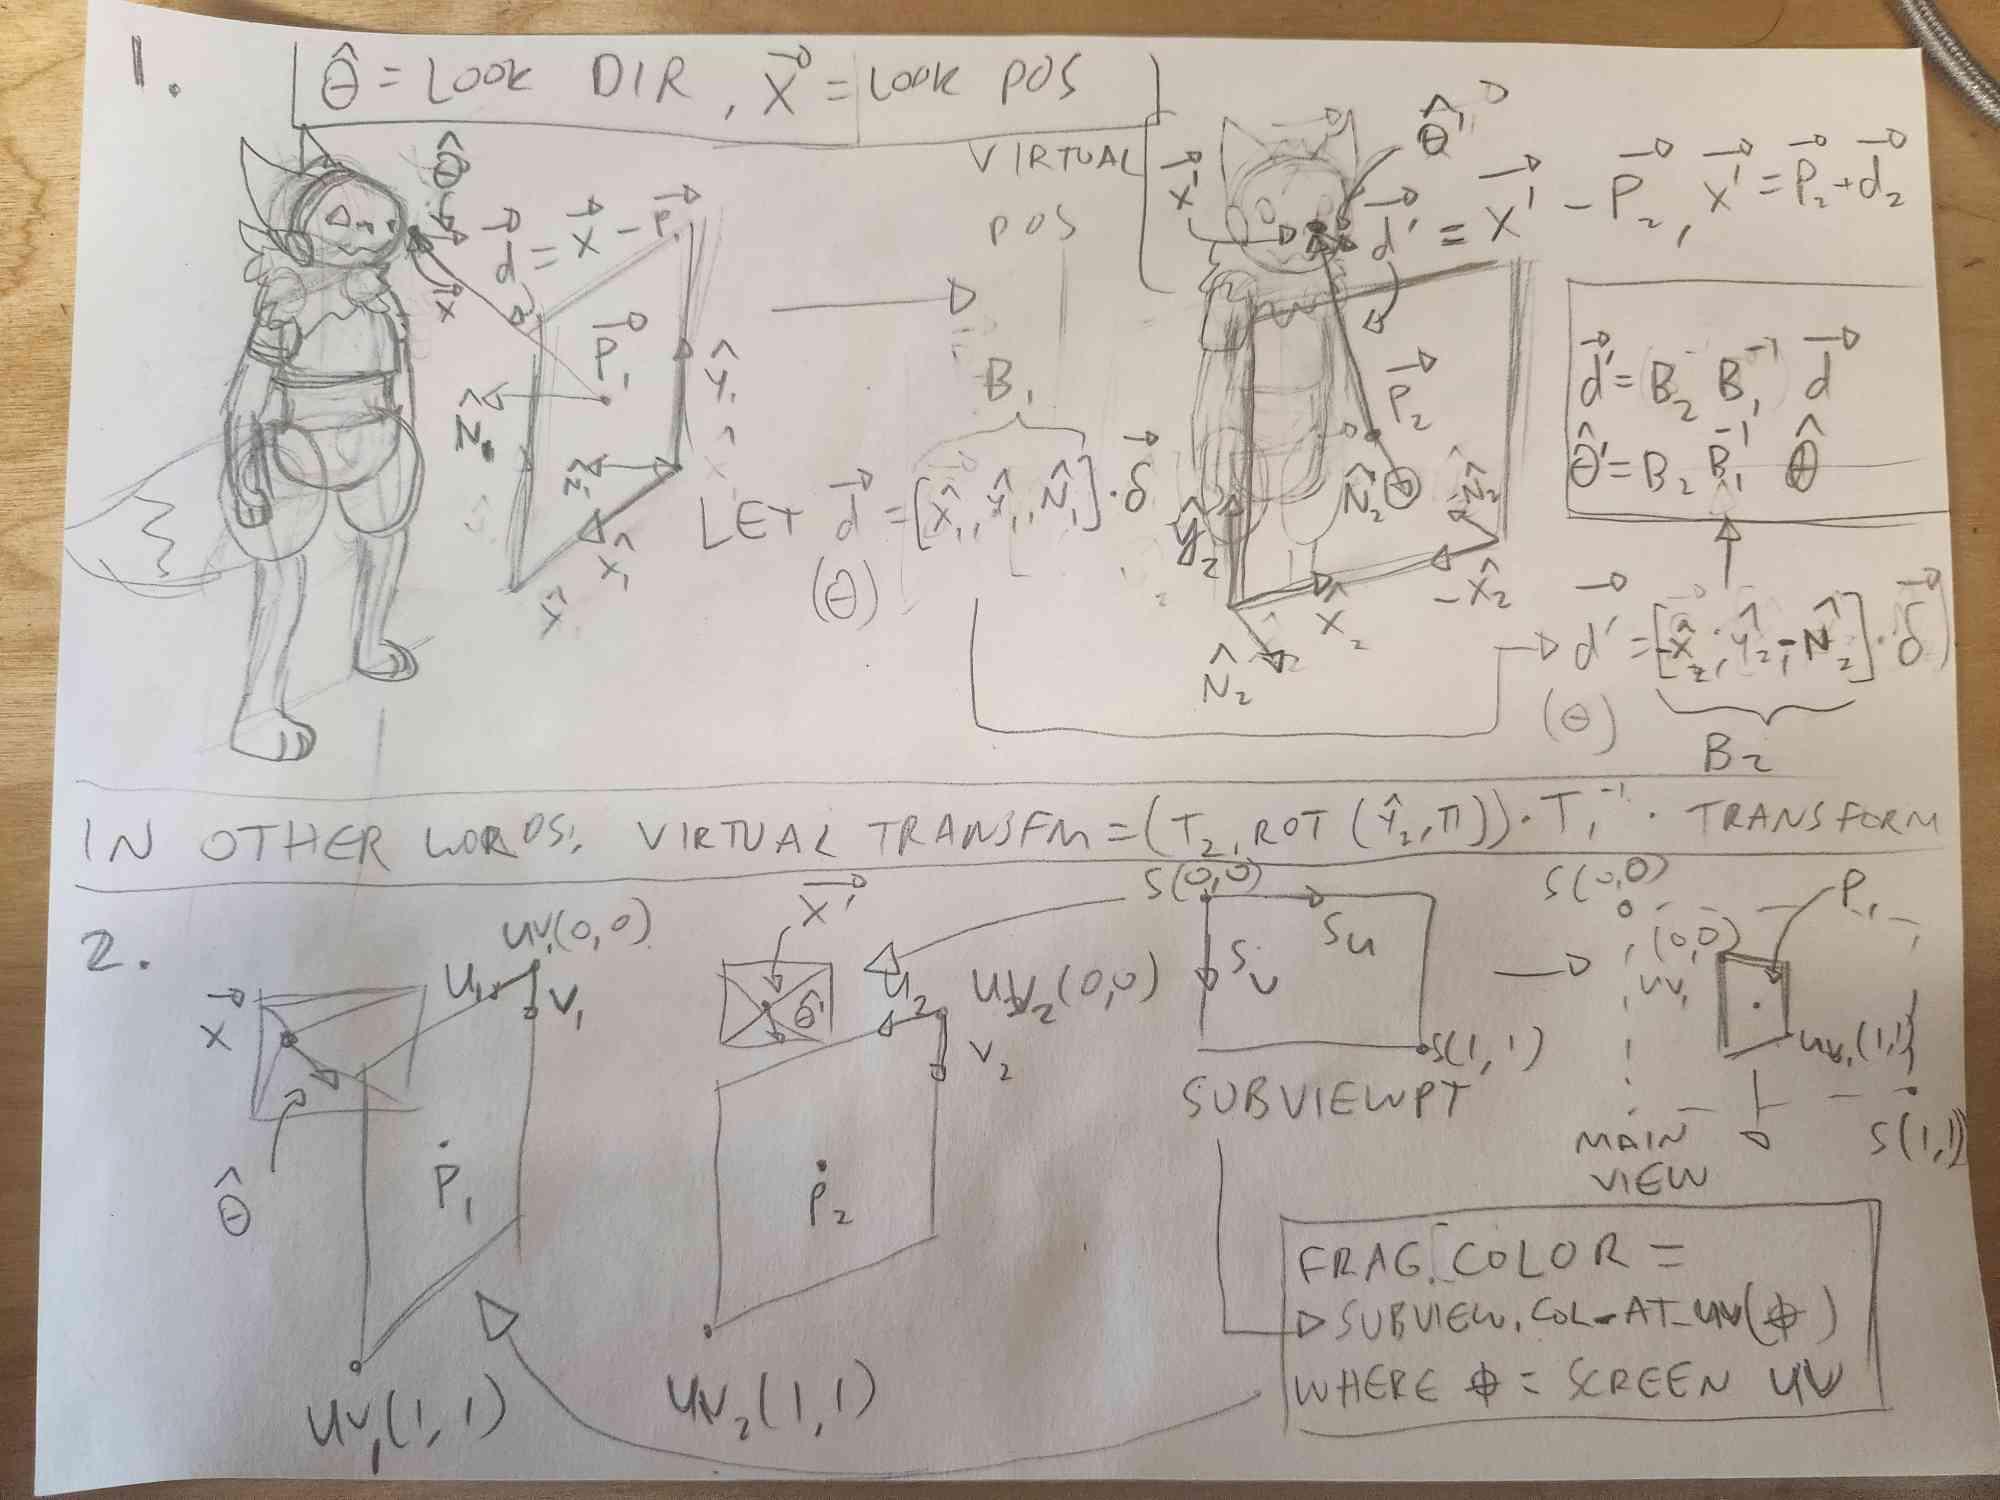 1.
θ̂ = LOOK DIR, X⃗ = LOOK POS
θ̂
d⃗ = X⃗ - P⃗₁
X⃗
P⃗₁
N̂₁
Ŷ₁
N̂₁
X̂₁
VIRTUAL
POS
X⃗'
θ̂'
d⃗' = X⃗' - P⃗₂, X⃗' = P⃗₂ + d⃗₂
P⃗₂
N̂₂
N̂₂
Ŷ₂
X̂₂
-X̂₂
N̂₂
B₁
LET d⃗ = [X̂₁, Ŷ₁, N̂₁] · δ⃗
(θ)
d⃗' = B₂ B₁⁻¹ d⃗
θ̂' = B₂ B₁⁻¹ θ̂
d⃗' = [-X̂₂, Ŷ₂, -N̂₂] · δ⃗
(θ)
B₂
IN OTHER WORDS, VIRTUAL TRANSFM = (T₂, ROT (Ŷ₂, π)) · T₁⁻¹ · TRANSFORM
2.
X⃗
θ̂
U₁
UV₁(0,0)
V₁
P₁
UV₁(1,1)
X⃗'
θ̂'
U₂
UV₂(0,0)
V₂
P₂
UV₂(1,1)
S(0,0)
Su
Sv
S(1,1)
SUBVIEWPT
S(0,0)
P₁
(0,0)
UV₁
UV₁(1,1)
MAIN
VIEW
S(1,1)
FRAG.COLOR =
SUBVIEW.COL-AT-UV(ϕ)
WHERE ϕ = SCREEN UV